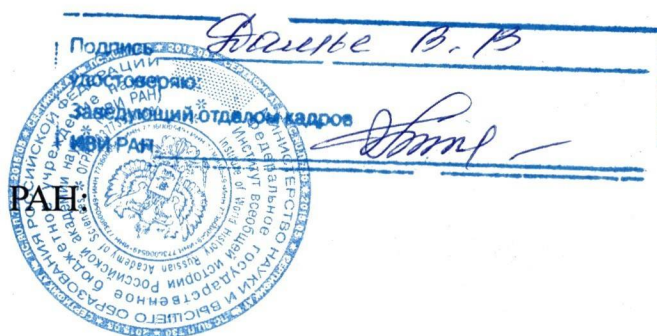 Подпись Дамье В. В
удостоверяю:
Заведующий отделом кадров
ИВИ РАН
РАН:
МИНИСТЕРСТВО НАУКИ И ВЫСШЕГО ОБРАЗОВАНИЯ РОССИЙСКОЙ ФЕДЕРАЦИИ
Федеральное государственное бюджетное учреждение науки
Институт Всеобщей истории Российской академии наук (ИВИ РАН)
Institute of World History Russian Academy of Sciences